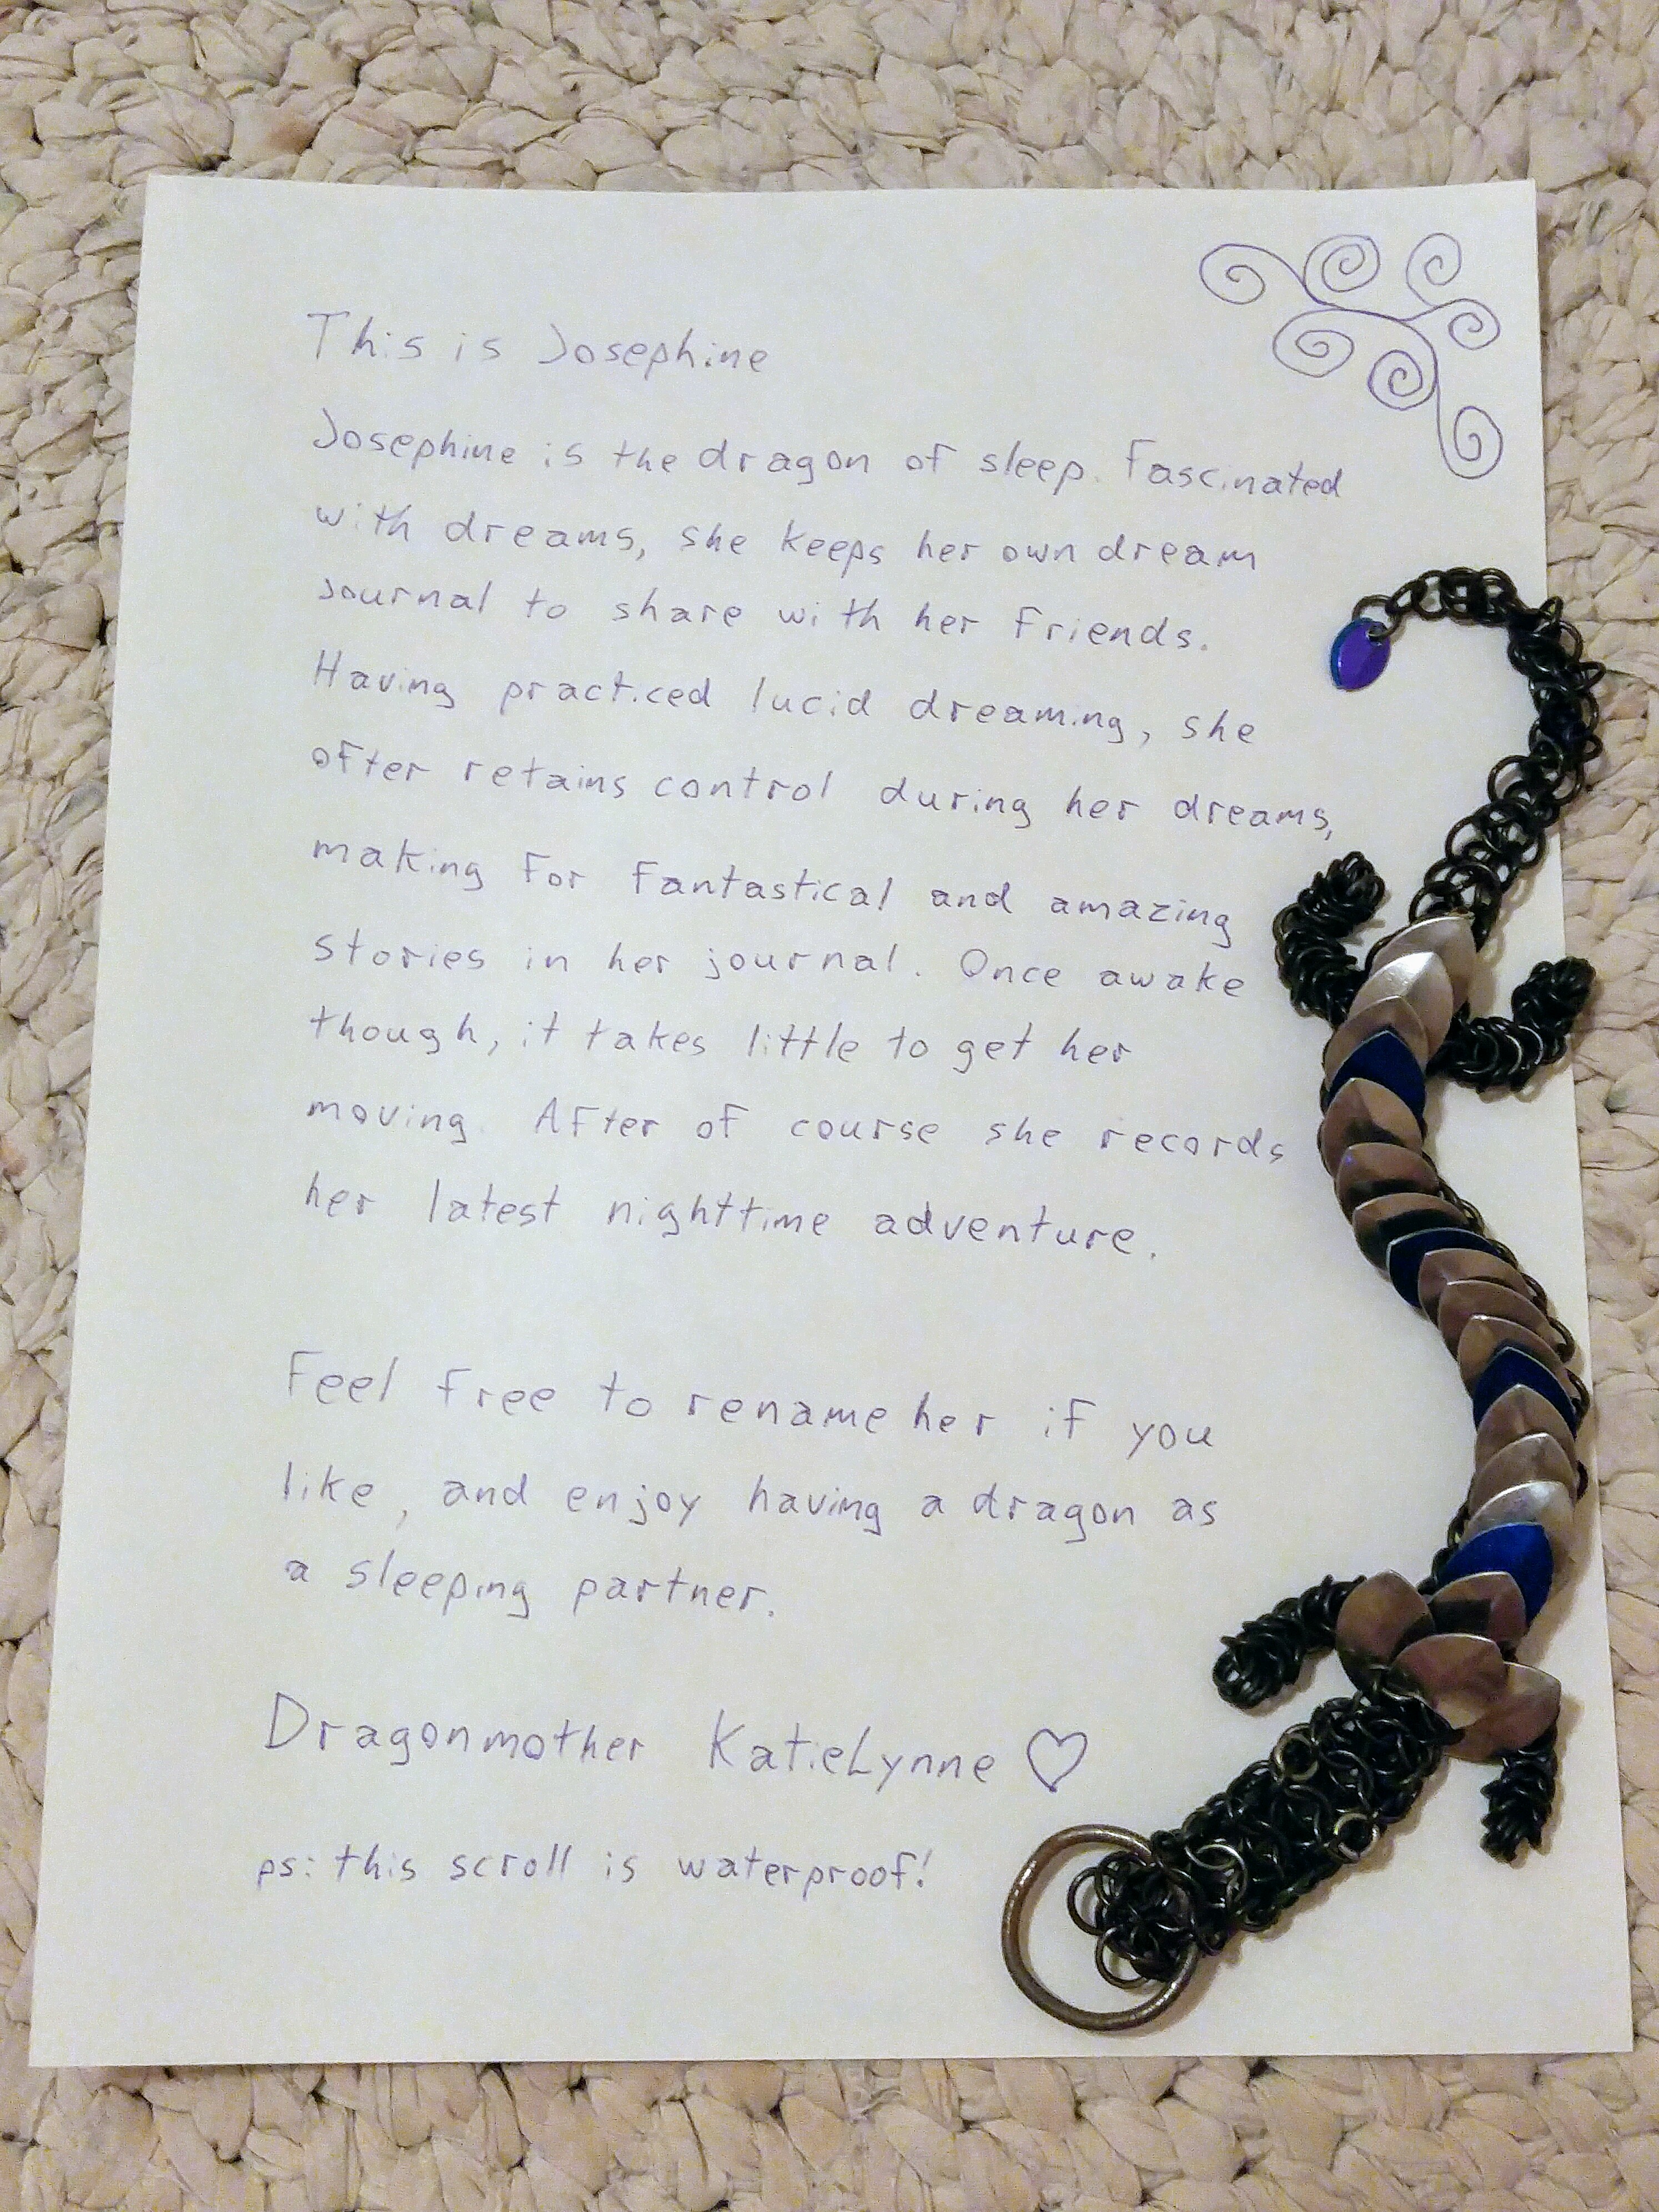 This is Josephine
Josephine is the dragon of sleep. Fascinated
with dreams, she keeps her own dream
journal to share with her friends.
Having practiced lucid dreaming, she
often retains control during her dreams,
making for fantastical and amazing
stories in her journal. Once awake
though, it takes little to get her
moving. After of course she records
her latest nighttime adventure.
Feel free to rename her if you
like, and enjoy having a dragon as
a sleeping partner.
Dragonmother KatieLynne ♡
ps: this scroll is waterproof!